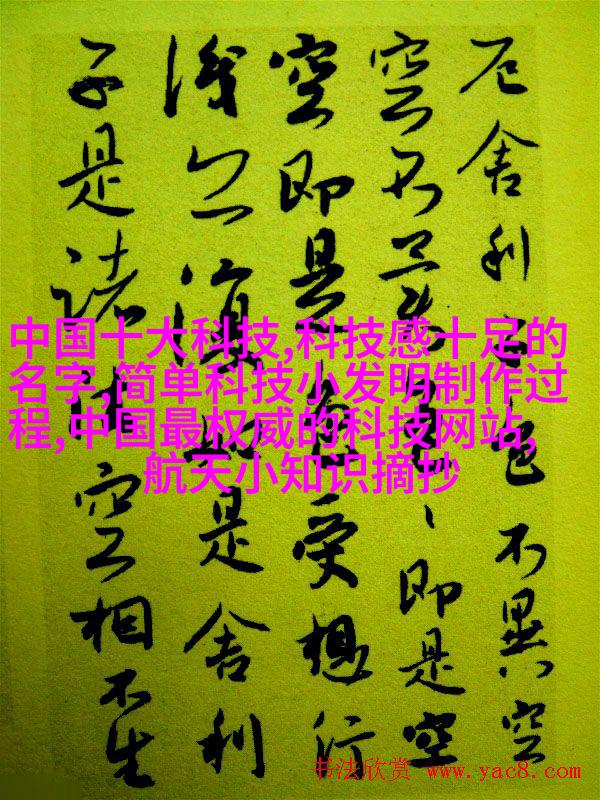 厄舍利子色不異空
空不異色色即是空
空即是色受想行
識亦復如是舍利
子是諸法空相不生
中国十大科技,科技感十足的
名字,简单科技小发明制作过
程,中国最权威的科技网站,
航天小知识摘抄
书法欣赏 www.yac8.com